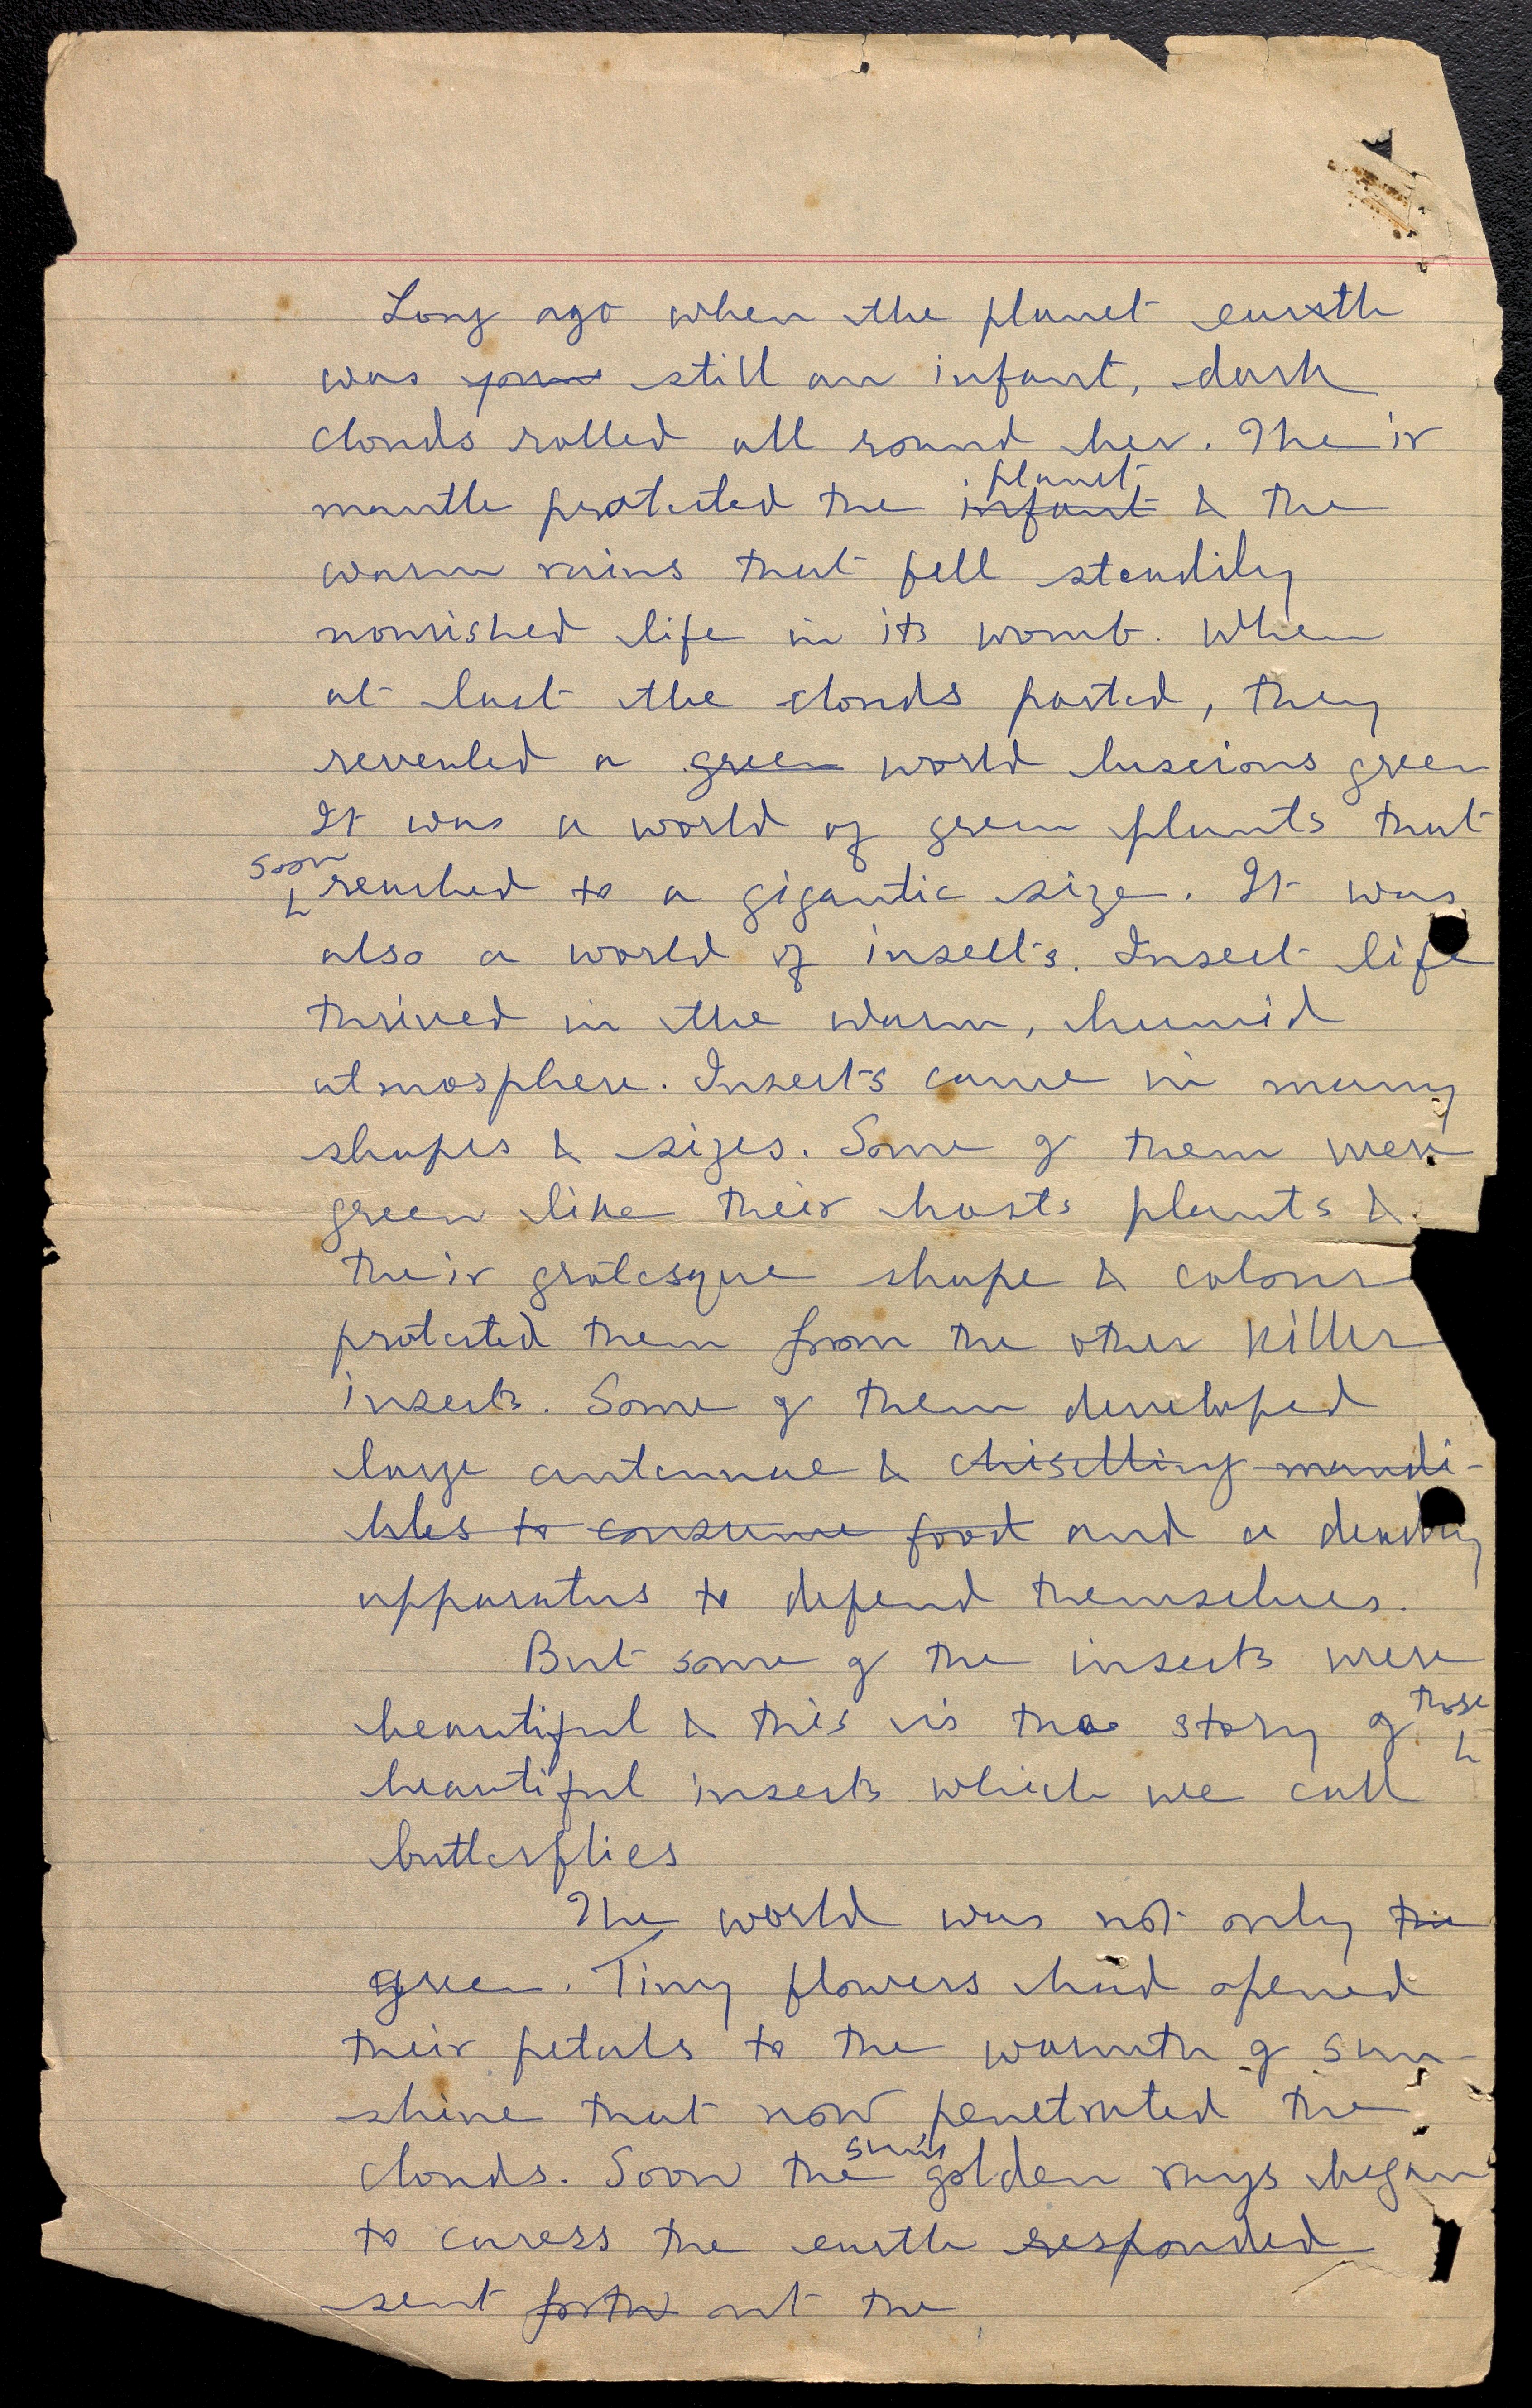 Long ago when the planet earth
was still an infant, dark
clouds rolled all round her. Their
planet
mantle protected the infant & the
warm rains that fell steadily
nourished life in its womb. When
at last the clouds parted, they
revealed a green world luscious green
It was a world of green plants that
soon
reached to a gigantic size. It was
also a world of insects. Insect life
thrived in the warm, humid
atmosphere. Insects came in many
shapes & sizes. Some of them were
green like their hosts plants &
their grotesque shape & colour
protected them from the other killer
insects. Some of them developed
large antennae & chiselling mandi-
bles to consume food and a deadly
apparatus to defend themselves.
But some of the insects were
those
beautiful & this is the story of
beautiful insects which we call
butterflies
The world was not only the
green. Tiny flowers had opened
their petals to the warmth of sun-
shine that now penetrated the
sun's
clouds. Soon the golden rays began
to caress the earth responded
sent forth out the